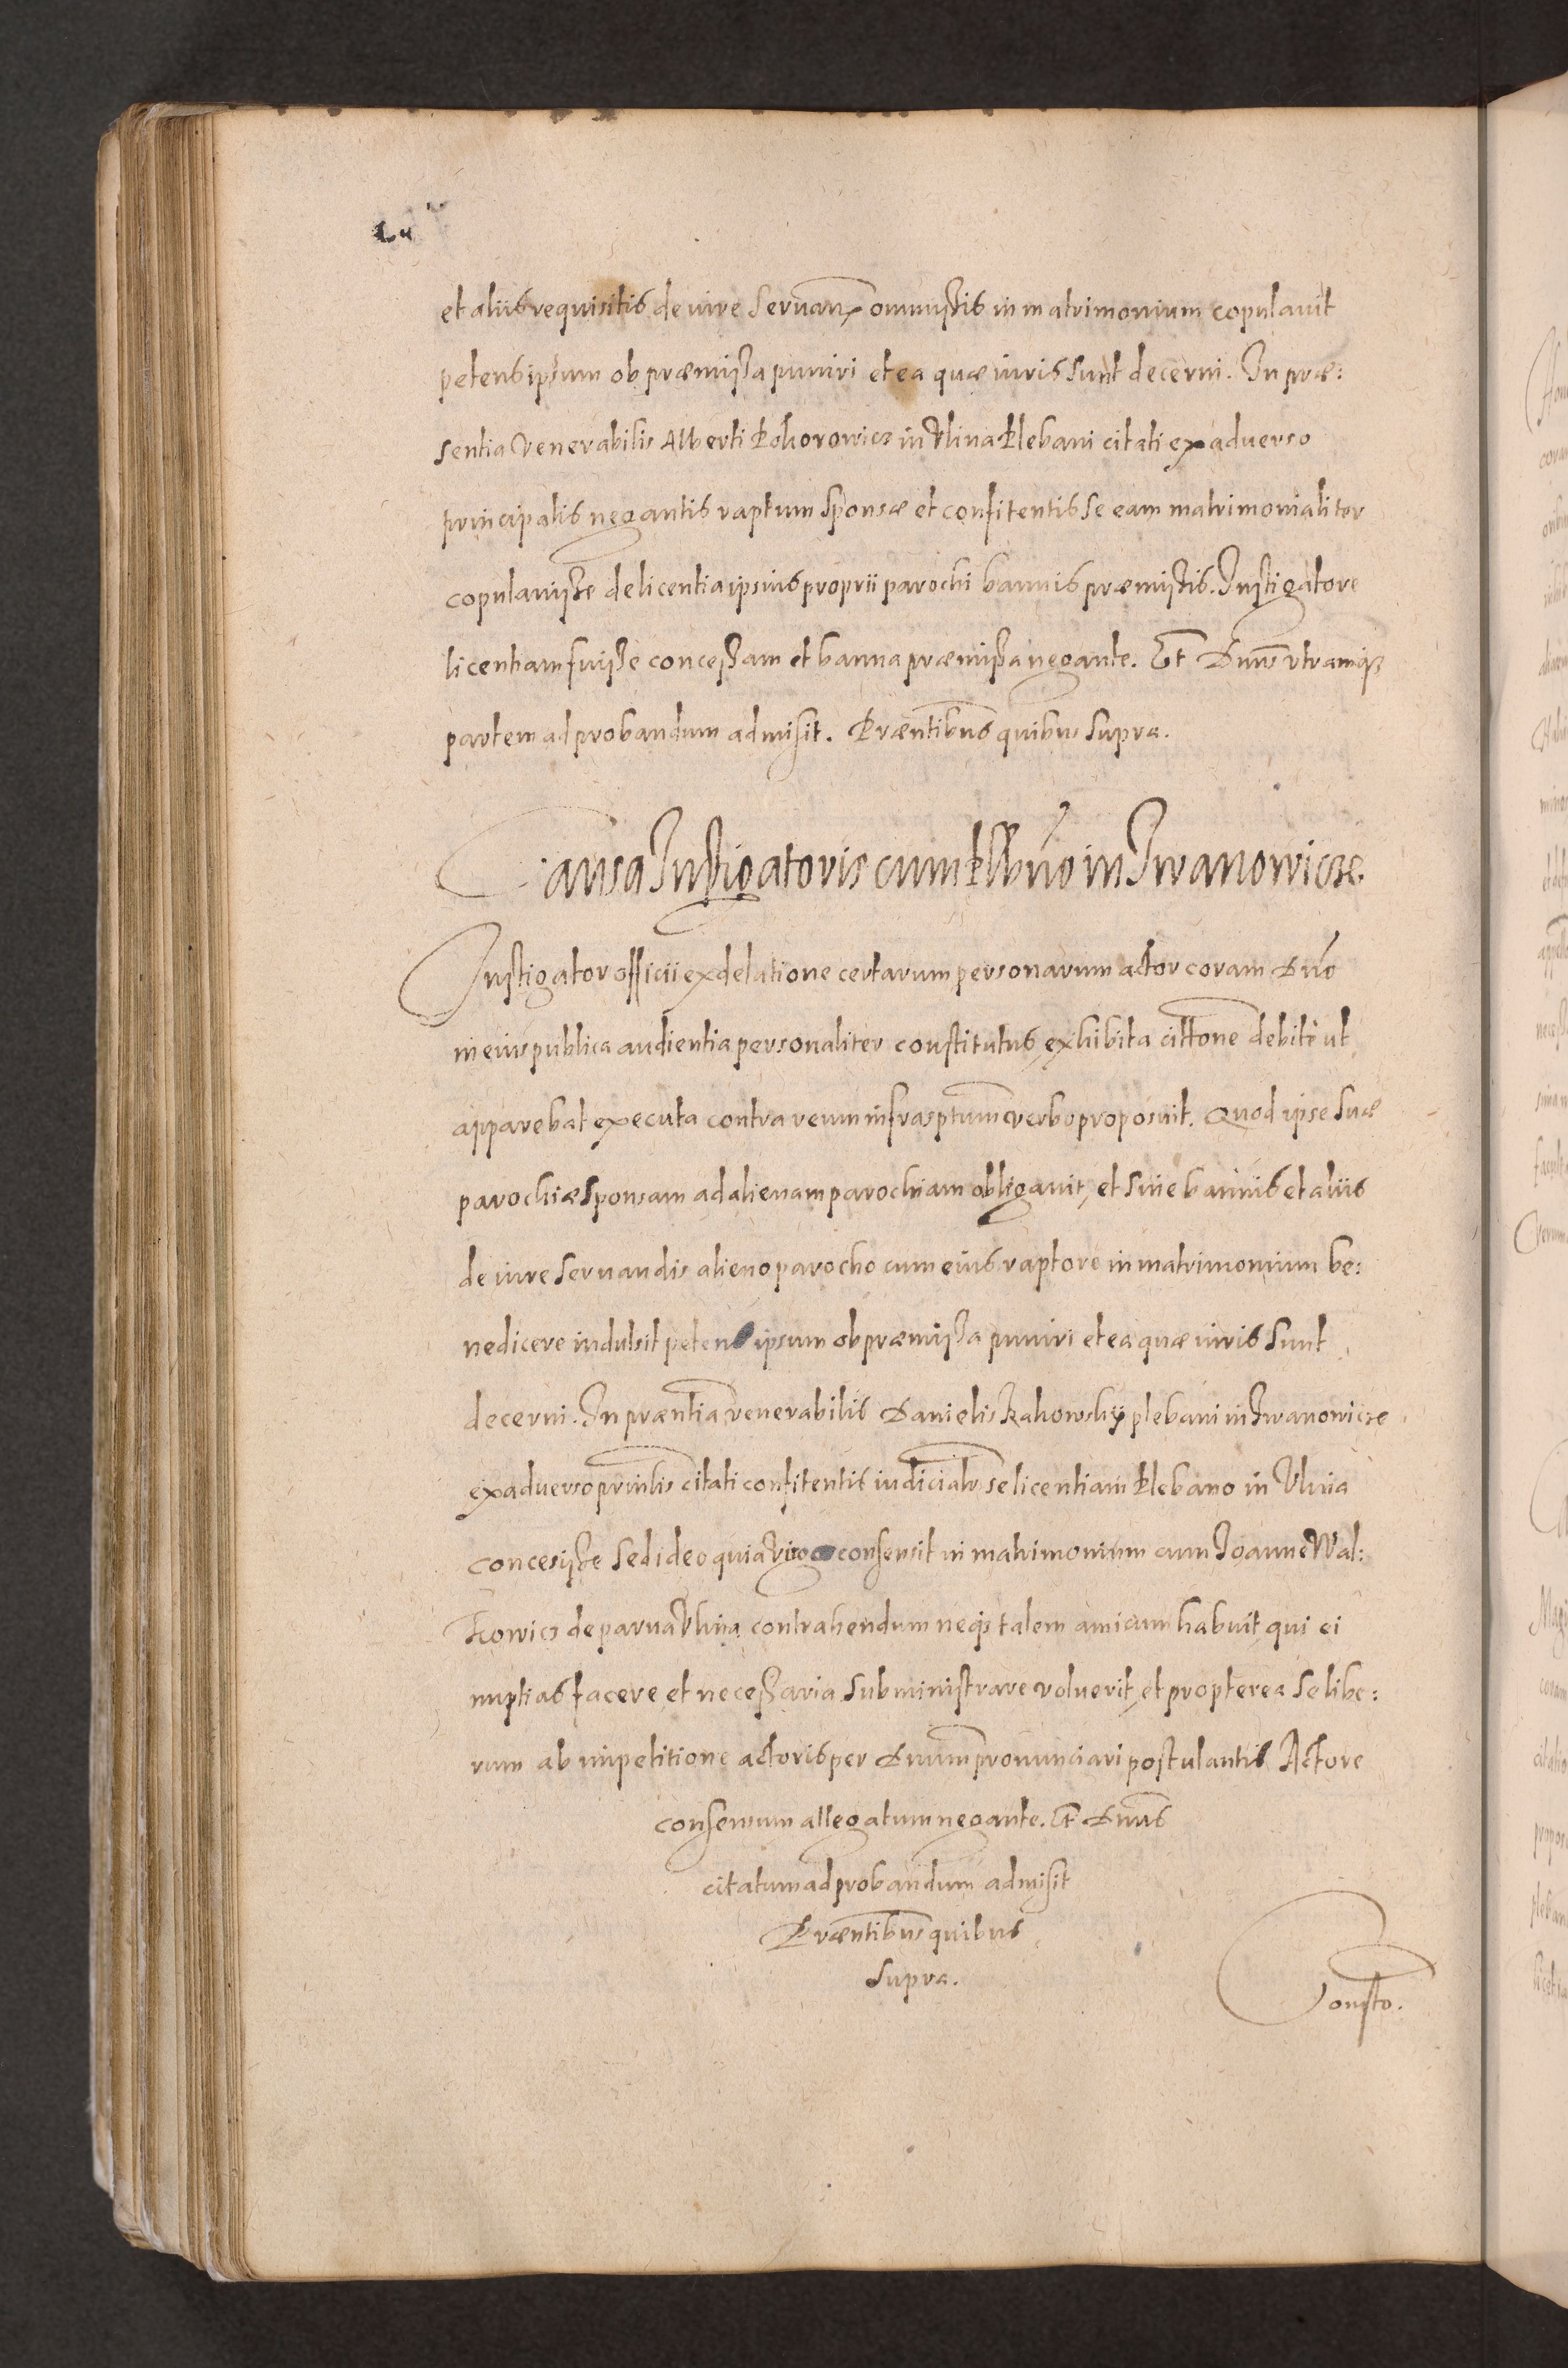 et aliis requisitis de iure seruan omissis in matrimonium copulauit
petens ipsum ob præmissa puniri et ea quæ iuris sunt decerni. In præ:
sentia Venerabilis Alberti Pohorowicz in Vlina Plebani citati ex aduerso
principalis negantis raptum sponsæ et confitentis se eam matrimonialiter
copulauisse de licentia ipsius proprii parochi bannis præmissis. Instigatore
licentiam fuisse concessam et banna præmissa negante. Et Dnus vtramqȝ
partem ad probandum admisit. Præntibus quibus supra.
Causa Instigatoris cum Plbno in Iwanowicze
Instigator officii ex delatione certarum personarum actor coram Dno
in eius publica audientia personaliter constitutus, exhibita cittone debite ut
apparebat executa contra reum infrasptum verbo proposuit. Quod ipse suæ
parochiæ sponsam ad alienam parochiam obligauit, et sine bannis et aliis
de iure seruandis alieno parocho cum eius raptore in matrimonium be:
nedicere indulsit petens ipsum ob præmissa puniri et ea quæ iuris sunt
decerni. In præntia venerabilis Danielis Rakowskÿ plebani in Iwanowicze
ex aduerso prinlis citati confitentis iudicialr se licentiam Plebano in Vlina
concesisse sed ideo quia virgo consensit in matrimonium cum Joanne Wal:
kowicz de parua Vlina contrahendum neqȝ talem amicum habuit qui ei
nuptias facere et necessaria subministrare voluerit, et propterea se libe:
rum ab impetitione actoris per Dnum pronunciari postulantis Actore
consensum allegatum negante. Et Dnus
citatum ad probandum admisit
Præntibus quibus
supra.
Consto.